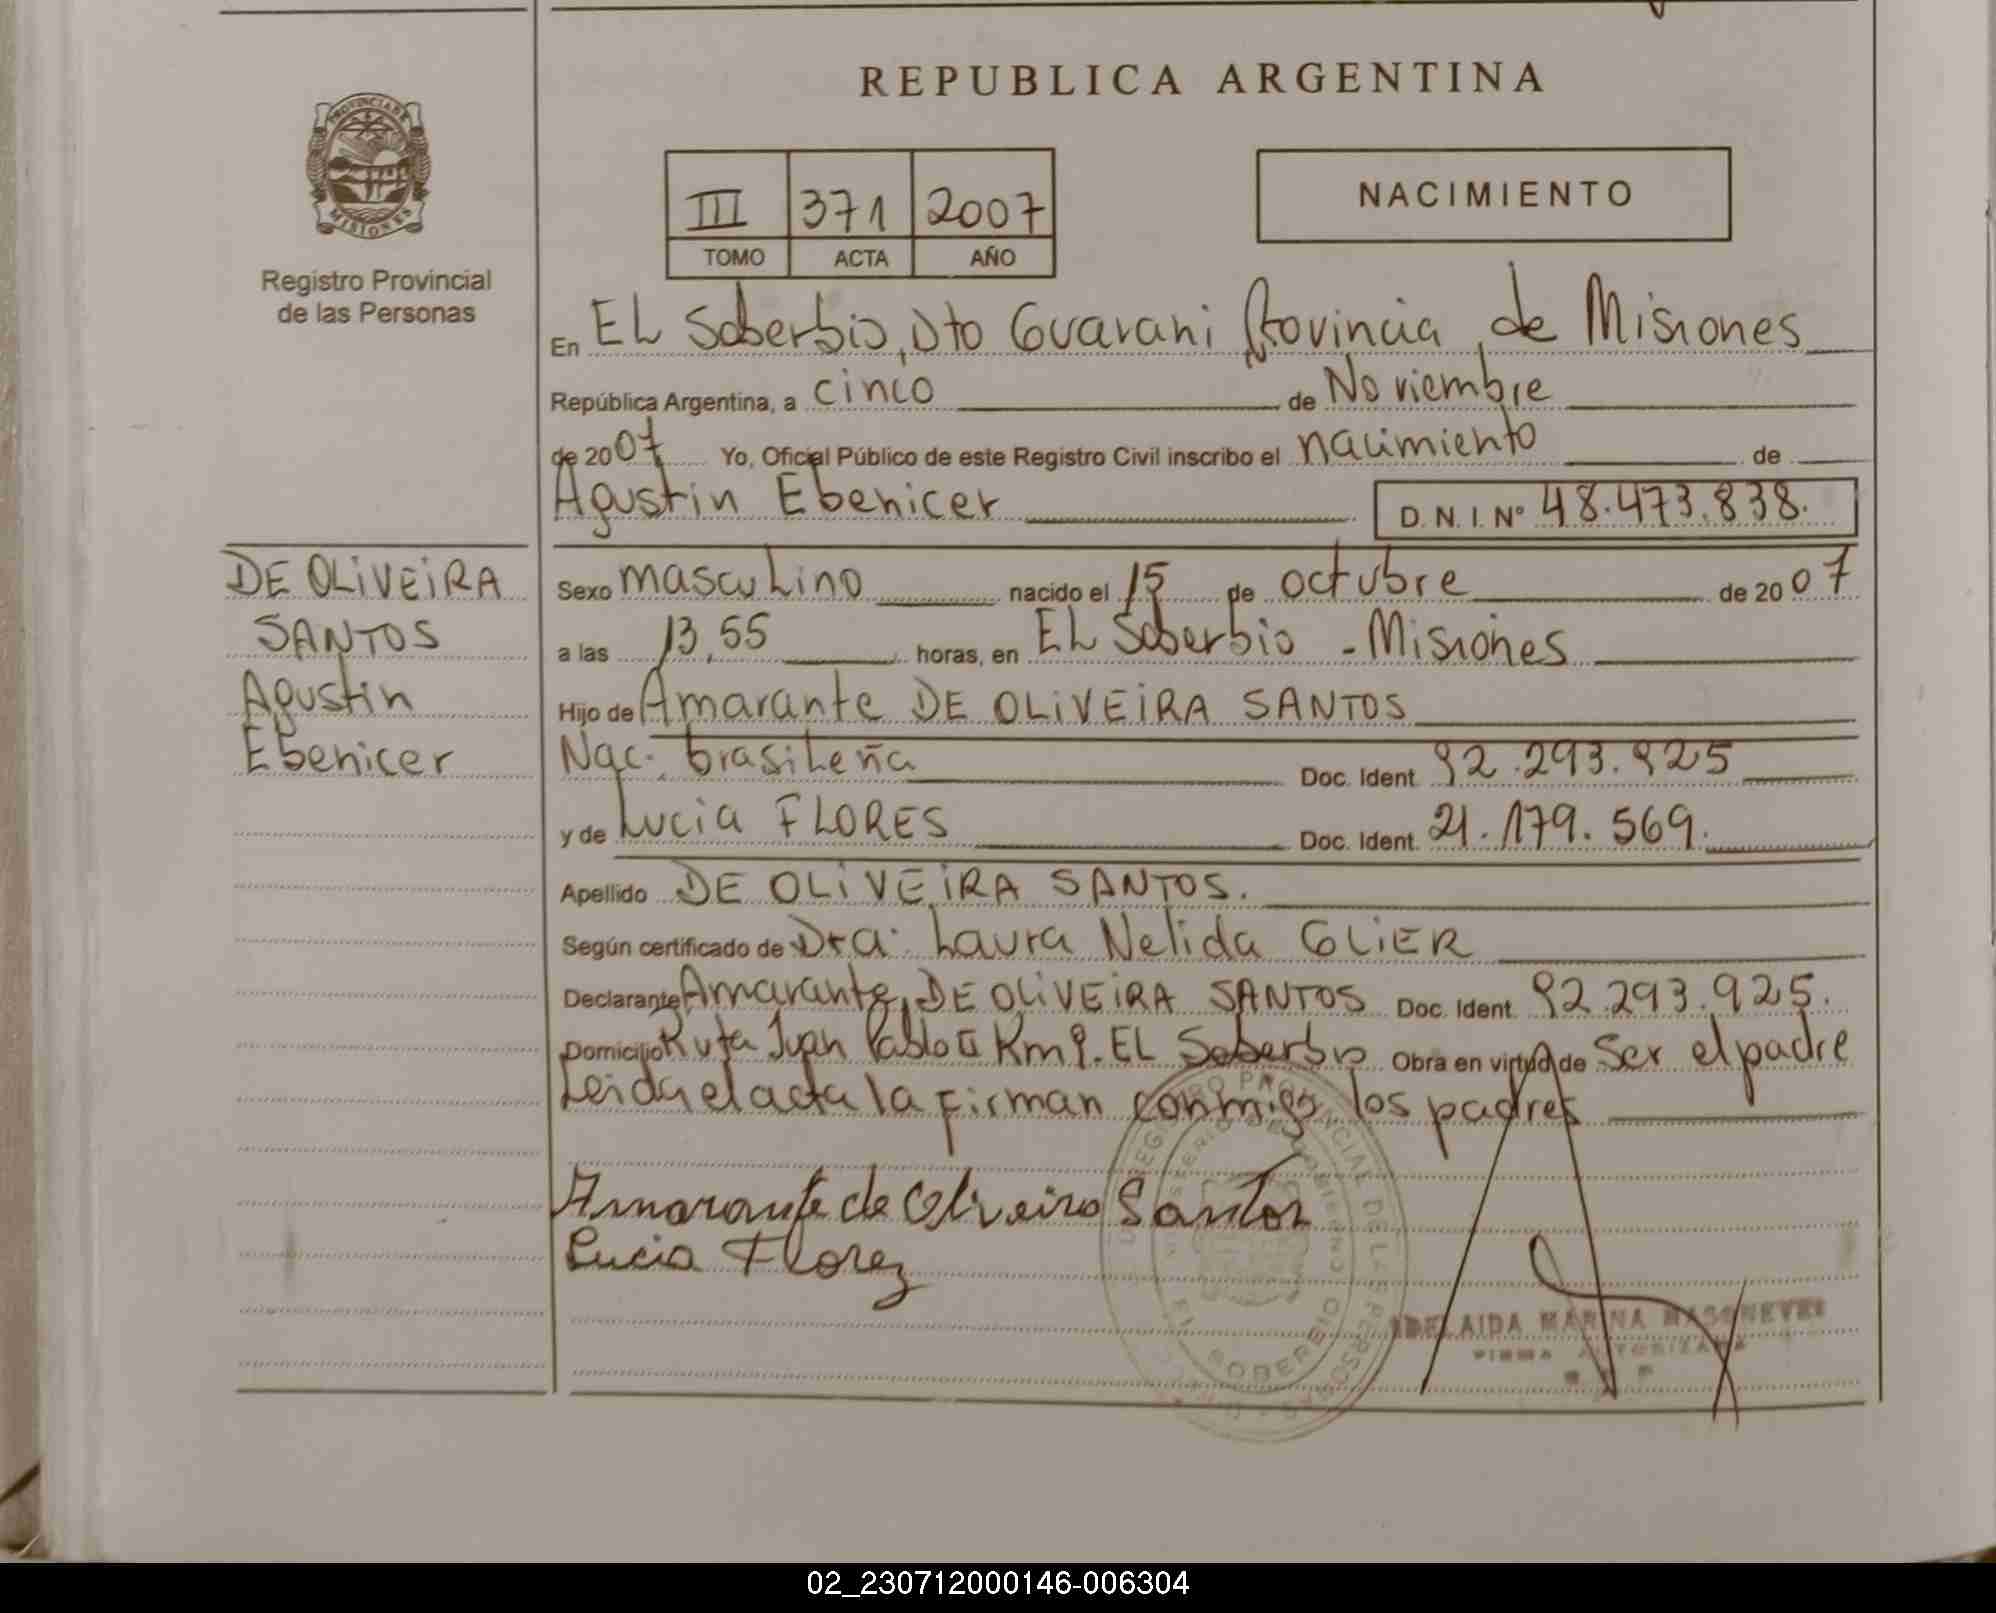 REPUBLICA ARGENTINA
PROVINCIA DE
MISIONES
Registro Provincial
de las Personas
III 371 2007
TOMO ACTA AÑO
NACIMIENTO
En EL Soberbio, Dto Guarani Provincia de Misiones
República Argentina, a cinco de Noviembre
de 2007 Yo, Oficial Público de este Registro Civil inscribo el nacimiento de
Agustin Ebenicer D. N. I. Nº 48.473.838.
DE OLiVEiRA
SANTOS
Agustin
Ebenicer
Sexo masculino nacido el 15 de octubre de 2007
a las 13,55 horas, en EL Soberbio - Misiones
Hijo de Amarante DE OLiVEiRA SANTOS
Nac. brasileña Doc. Ident. 92.293.925
y de Lucia FLORES Doc. Ident. 21.179.569.
Apellido DE OLiVEiRA SANTOS.
Según certificado de Dra. Laura Nelida GLiER
Declarante Amarante DE OLiVEiRA SANTOS Doc. Ident. 92.293.925.
Domicilio Ruta Juan Pablo II Km 9. EL Soberbio Obra en virtud de Ser el padre
Leida el acta la firman conmigo los padres
Amarante de Oliveira Santos
Lucia Florez
REGISTRO PROVINCIAL DE LAS PERSONAS
MINISTERIO DE GOBIERNO
EL SOBERBIO
ADELAIDA MARINA
FIRMA AUTORIZADA
02_230712000146-006304